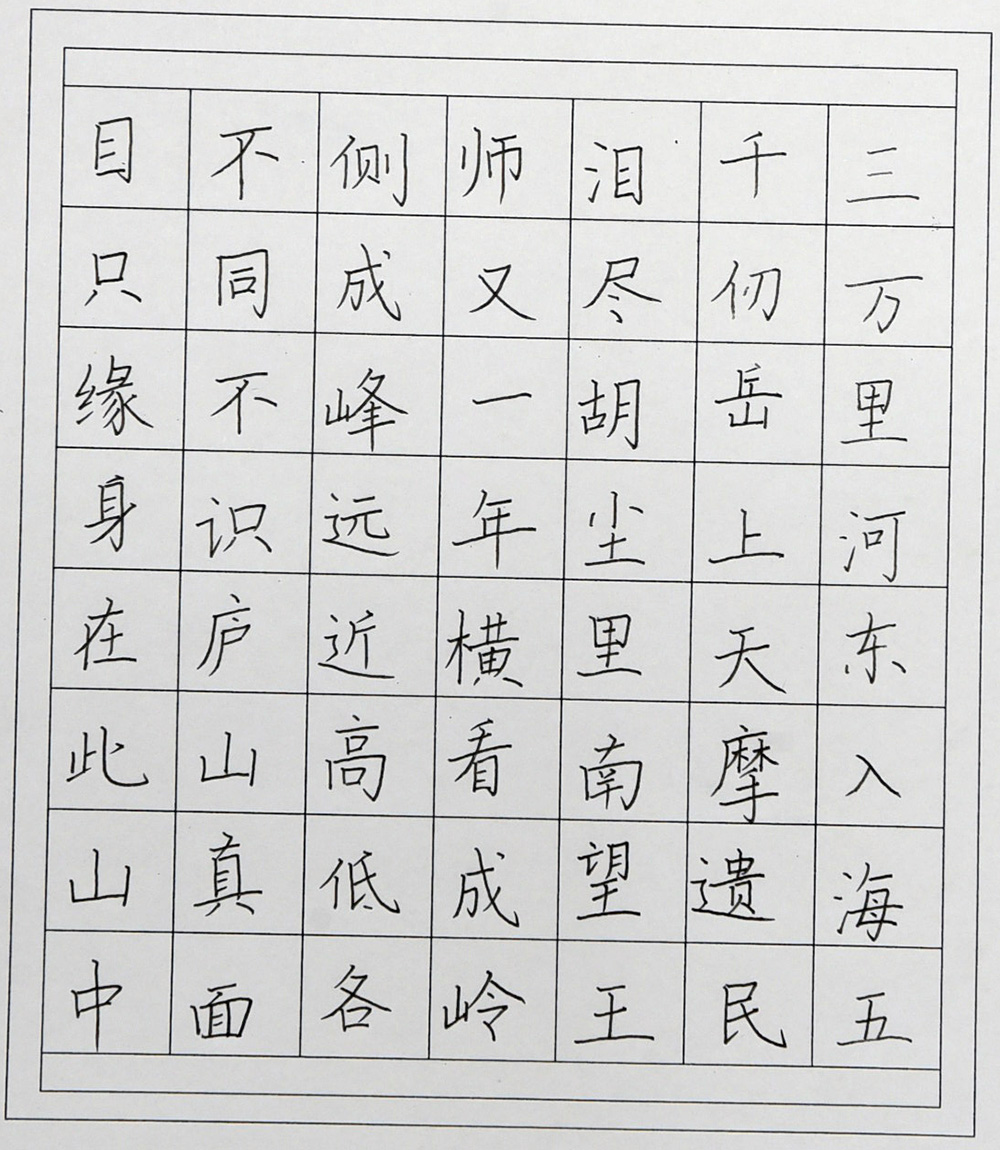 三万里河东入海五
千仞岳上天摩遗民
泪尽胡尘里南望王
师又一年横看成岭
侧成峰远近高低各
不同不识庐山真面
目只缘身在此山中